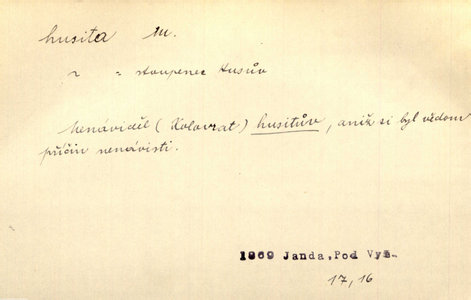 husita m.
~ = stoupenec Husův
Nenáviděl (Kolovrat) husitův, aniž si byl vědom
příčin nenávisti.
1869 Janda, Pod Vyš.
17, 16